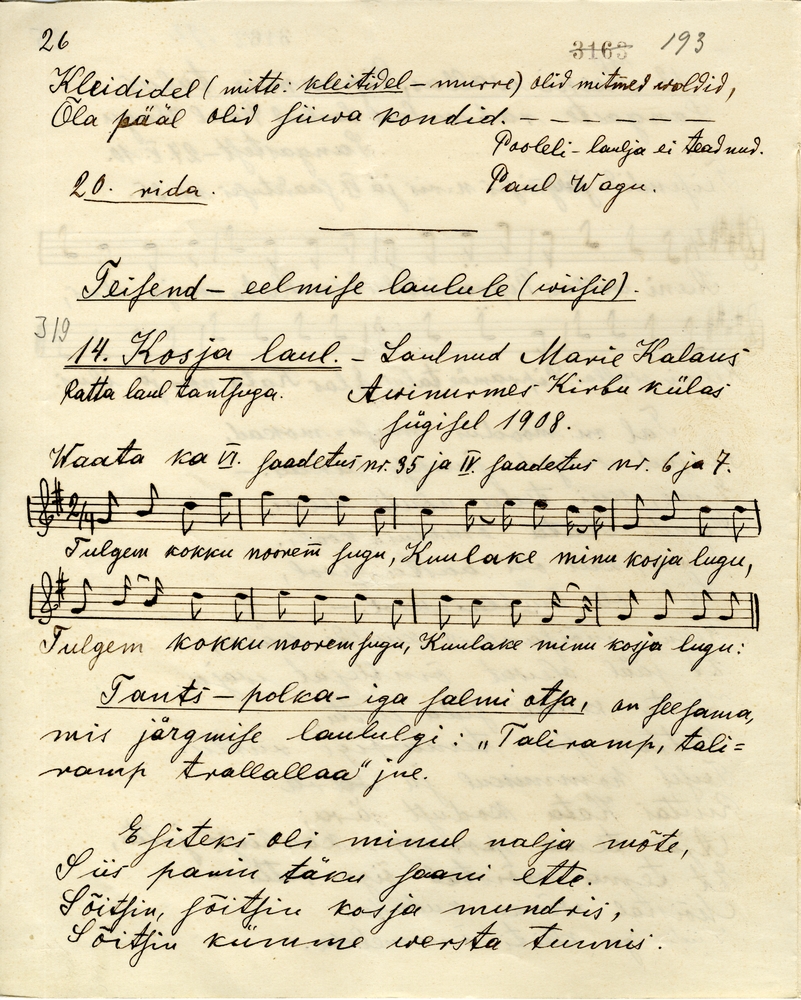 26
3163 193
Kleididel (mitte: kleitidel – murre) olid mitmed woldid,
Õla pääl olid siiwa kondid. – – – – – –
Pooleli – laulja ei teadnud.
20. rida. Paul Wagu.
Teisend – eelmise laulule (wiisil).
319
14. Kosja laul. – Laulnud Marie Kalaus
Ratta laul tantsuga. Awinurmes Kirbu külas
sügisel 1908.
Waata ka VI. saadetus nr. 35 ja IV. saadetus nr. 6 ja 7.
2/4
Tulgem kokku noorem̅ sugu, Kuulake minu kosja lugu,
Tulgem kokku noorem sugu, Kuulake minu kosja lugu:
Tants – polka – iga salmi otsa, on seesama,
mis järgmise laululgi: „Taliramp, tali=
ramp trallallaa" jne.
Esiteks oli minul nalja mõte,
Siis panin täku saani ette.
Sõitsin, sõitsin kosja mundris,
Sõitsin kümme wersta tunnis.